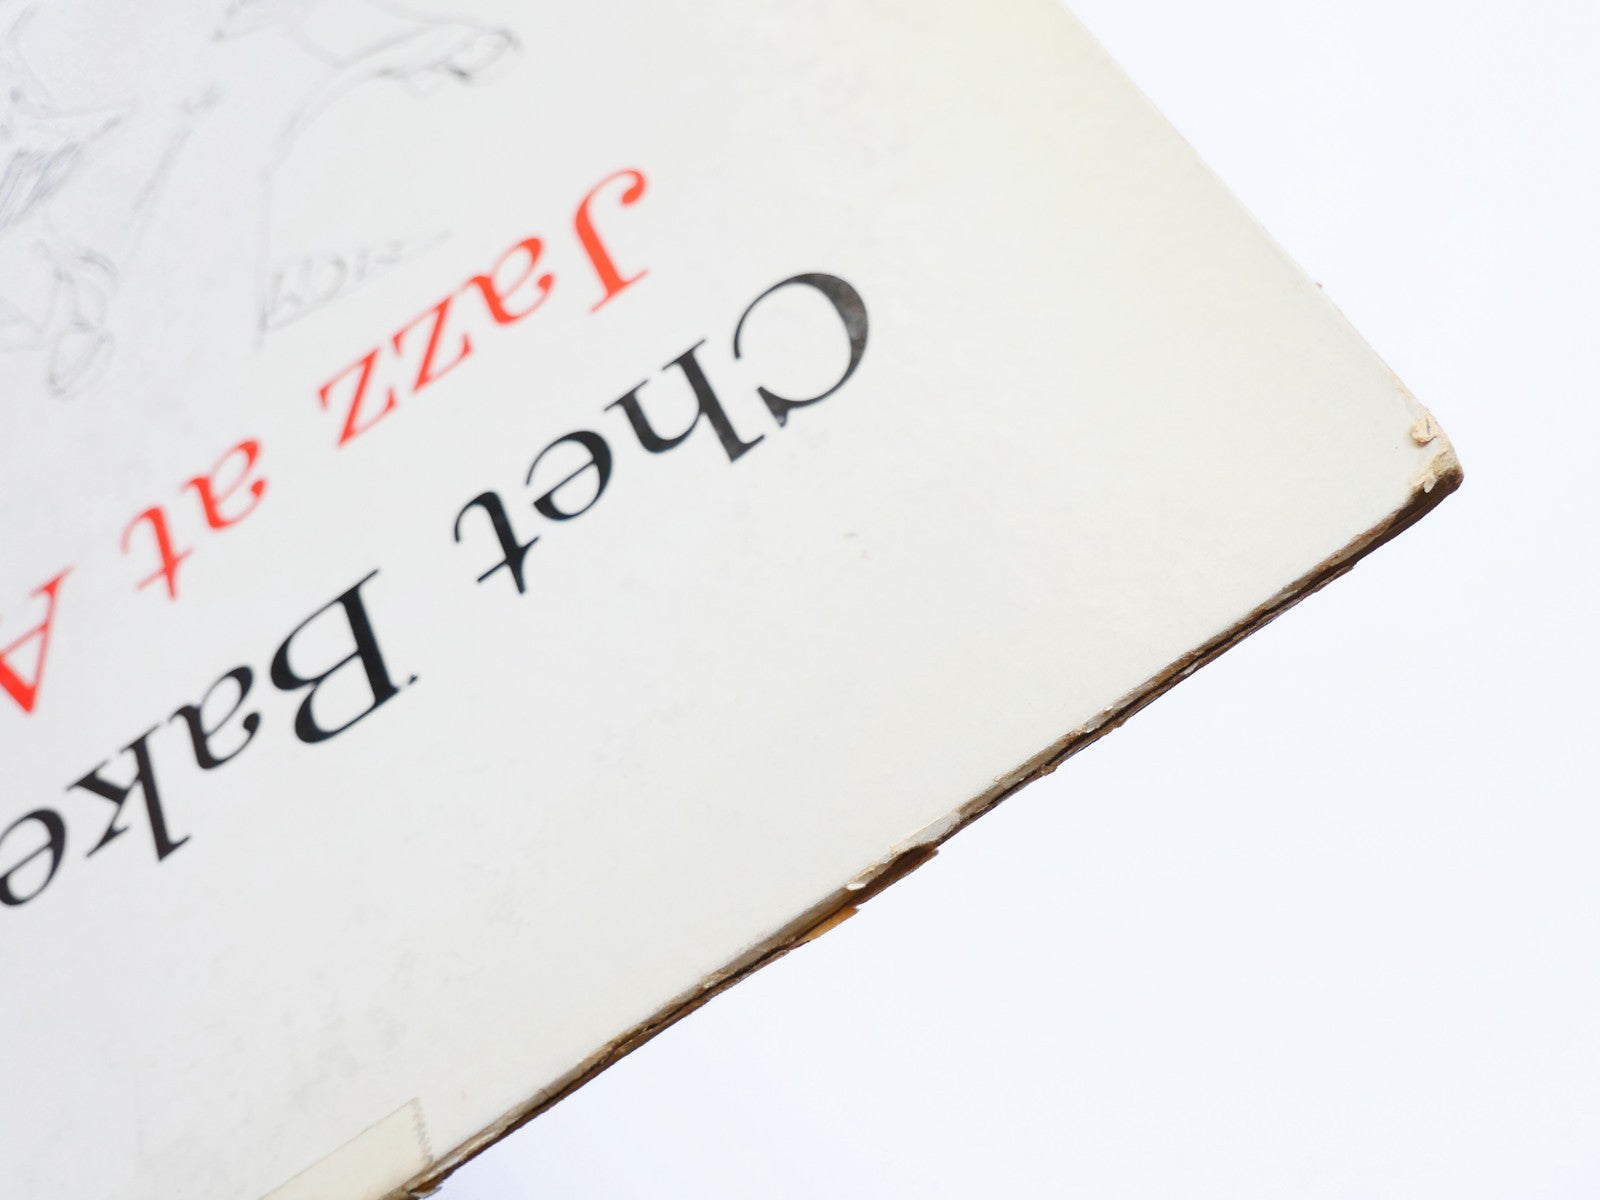 Chet Bake
Jazz at A